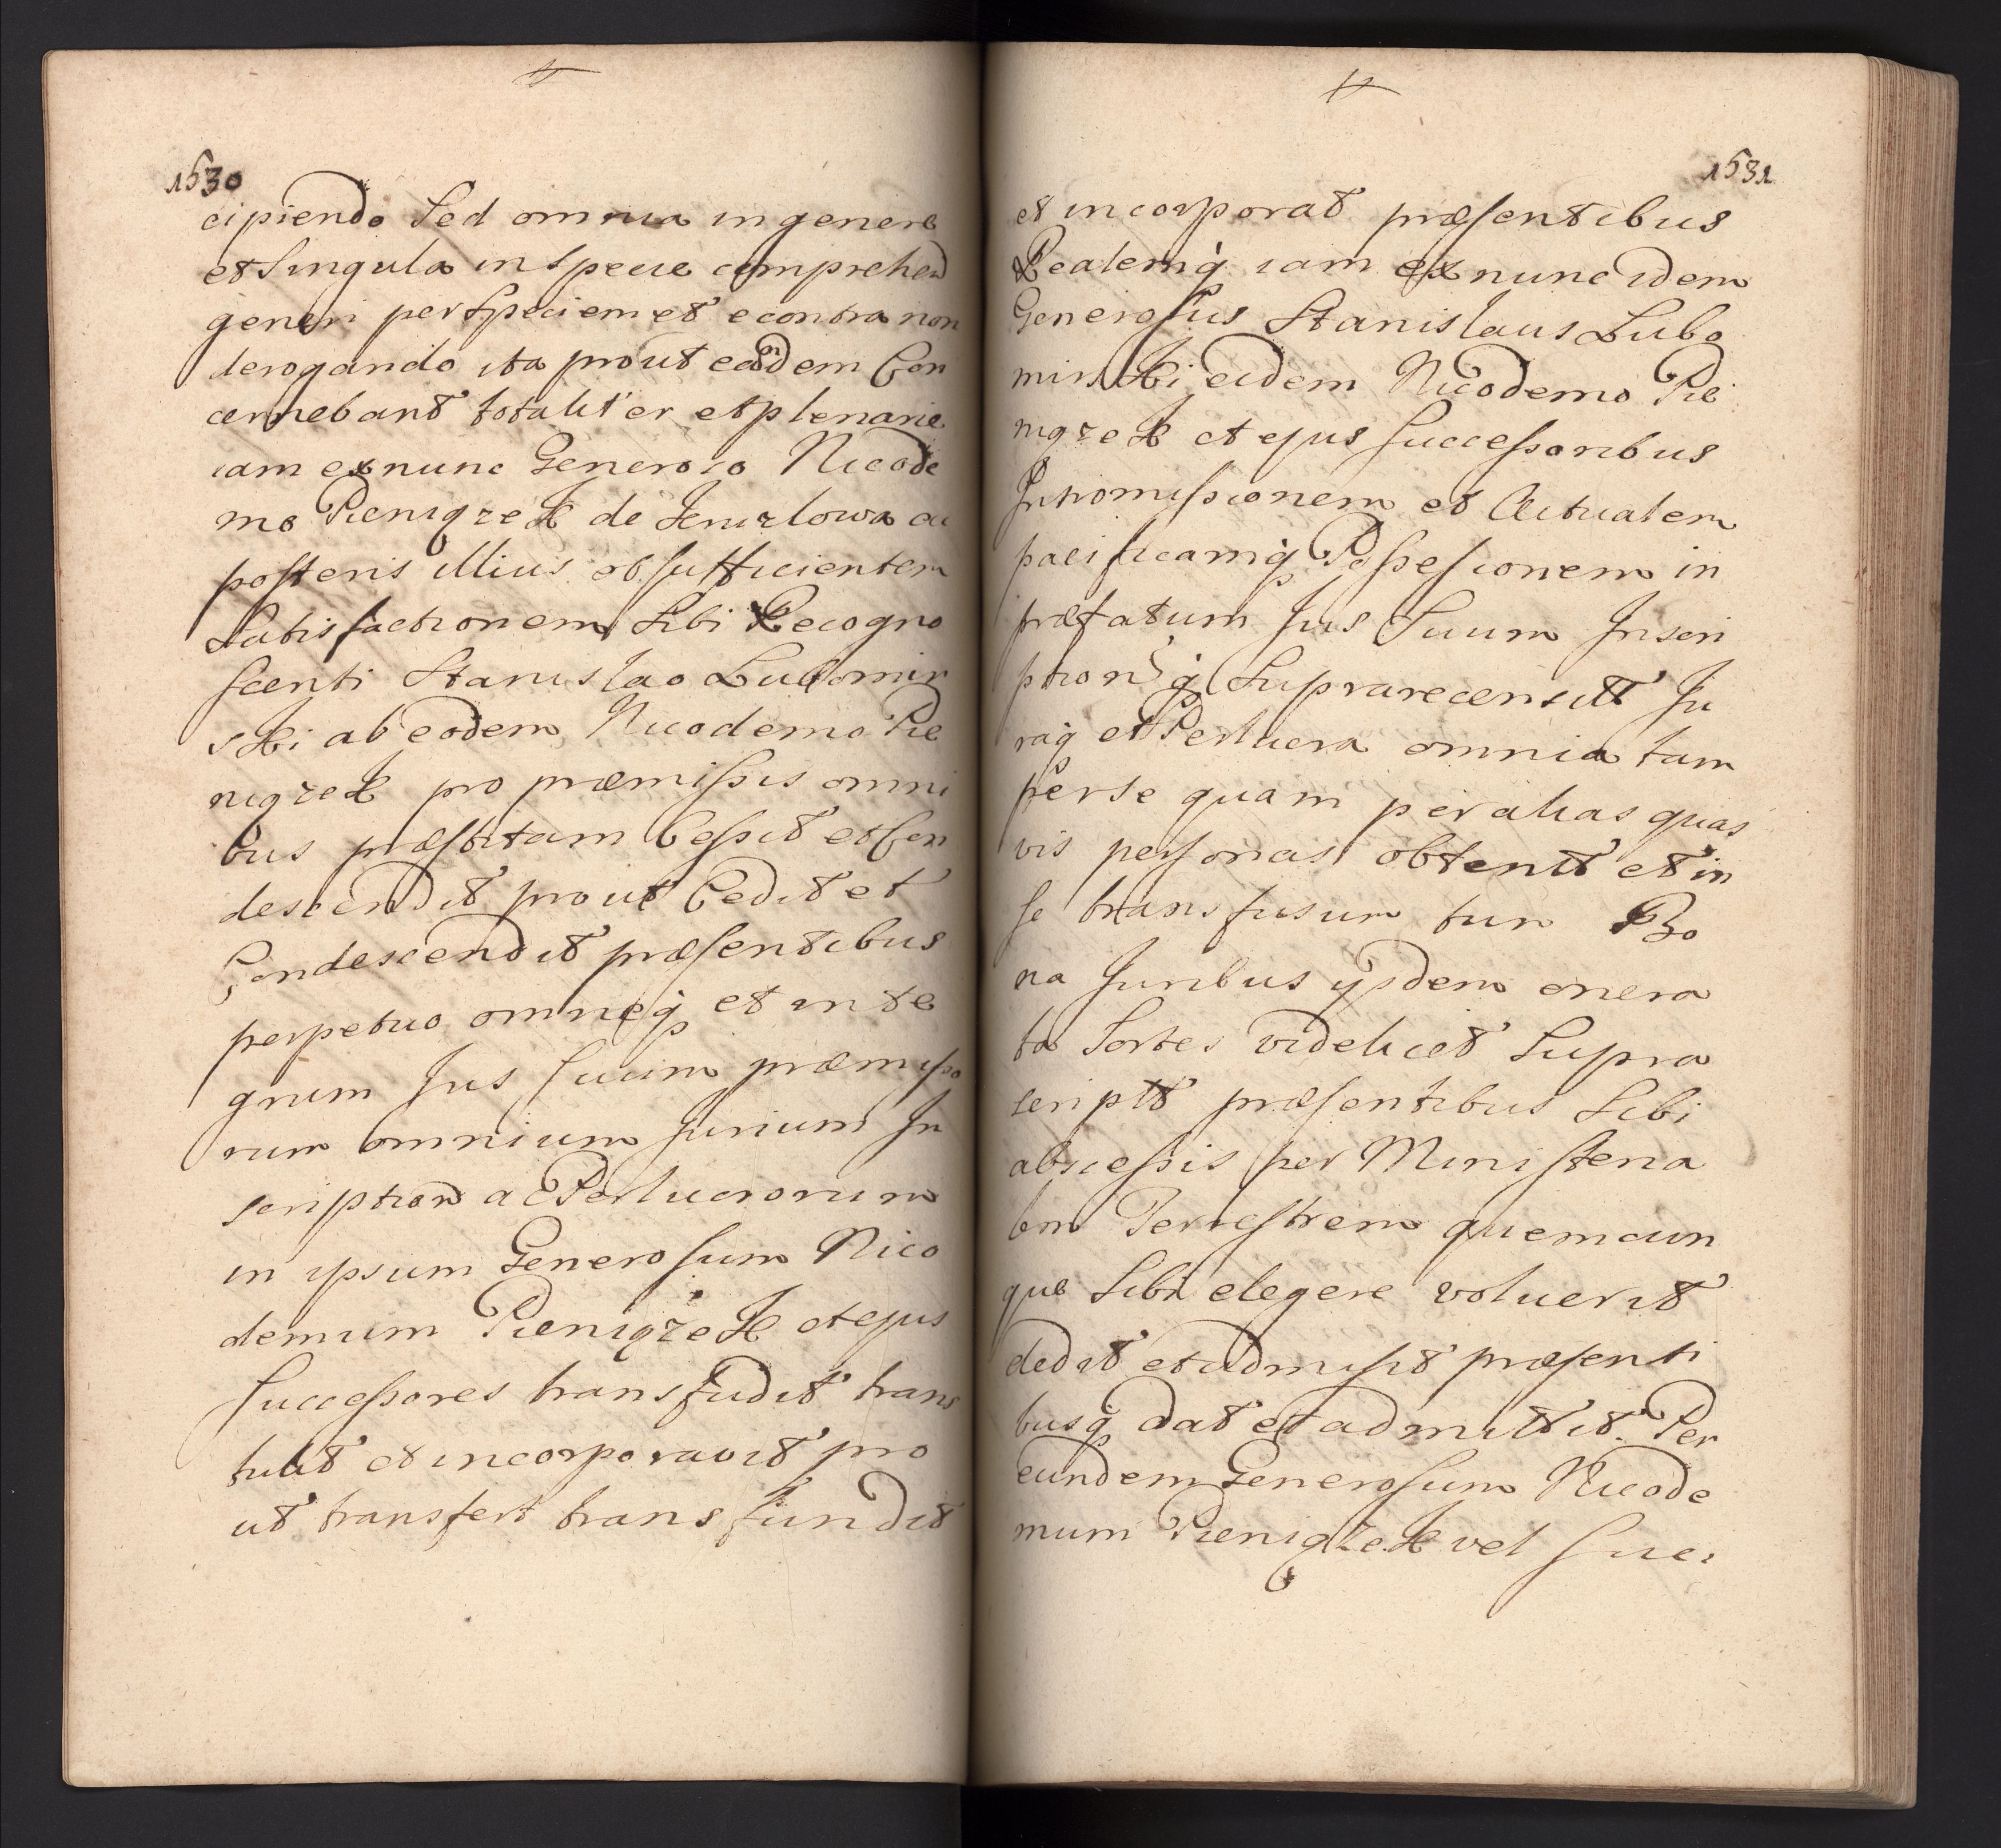 1530
cipiendo Sed omnia in genere
et Singula in Specie comprehen
generi per Speciem et econtra non
derogando ita prout eandem Con
cernebant totaliter et plenarie
iam ex nunc Generoso Nicode
mo Pieniązek de Jenizlowa ac
posteris illius ob sufficientem
Satisfactionem Sibi Recogno
scenti Stanislao Lubomir
ski ab eodem Nicodemo Pie
niązek pro præmissis omni
bus præstitam Cessit et Con
descendit prout Cedit et
Condescendit præsentibus
perpetuo omneq et inte
grum Jus Suum præmisso
rum omnium Jurium In
scription ac Perlucrorum
in ipsum Generosum Nico
demum Pieniązek et ejus
Successores transfudit trans
tulit et incorporavit pro
ut transfert transfundit
1531
et incorporat præsentibus
Realemq iam ex nunc idem
Generosus Stanislaus Lubo
mirski eidem Nicodemo Pie
niązek et ejus Successoribus
Intromissionem et Actualem
pacificamq Possessionem in
præfatum Jus Suum Inscri
ption q Suprarecensitt Ju
raq et Perlucra omnia tam
per se quam per alias quas
vis personas obtentt et in
se transfusum tum Bo
na Juribus ijsdem onera
ta Sortes videlicet Supra
scriptt præsentibus Sibi
abscessis per Ministeria
lem Terrestrem quemcun
que Sibi elegere voluerit
dedit et admisit præsenti
busq dat et admittit. Per
eundem Generosum Nicode
mum Pieniązek vel Suc: